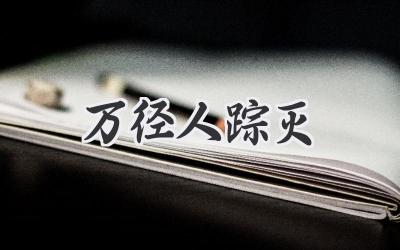 万径人踪灭